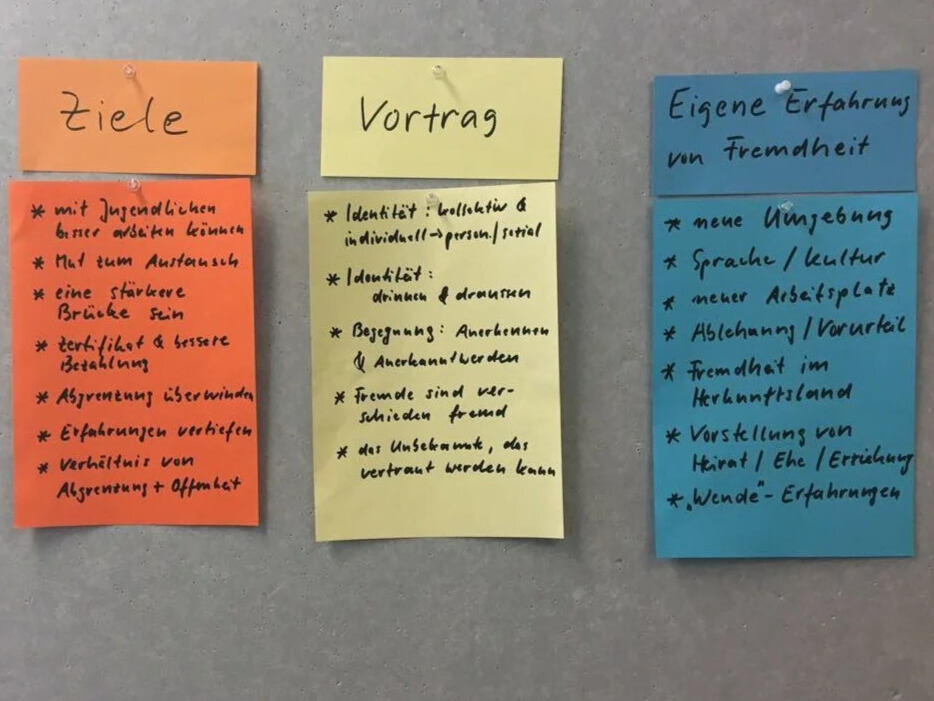 Ziele
* mit Jugendlichen
besser arbeiten können
* Mut zum Austausch
* eine stärkere
Brücke sein
* Zertifikat & bessere
Bezahlung
* Abgrenzung überwinden
* Erfahrungen vertiefen
* Verhältnis von
Abgrenzung + Offenheit
Vortrag
* Identität: kollektiv &
individuell → person./sozial
* Identität:
drinnen & draussen
* Begegnung: Anerkennen
& Anerkanntwerden
* Fremde sind ver-
schieden fremd
* das Unbekannte, das
vertraut werden kann
Eigene Erfahrung
von Fremdheit
* neue Umgebung
* Sprache / Kultur
* neuer Arbeitsplatz
* Ablehnung / Vorurteil
* Fremdheit im
Herkunftsland
* Vorstellung von
Heirat / Ehe / Erziehung
* „Wende“- Erfahrungen